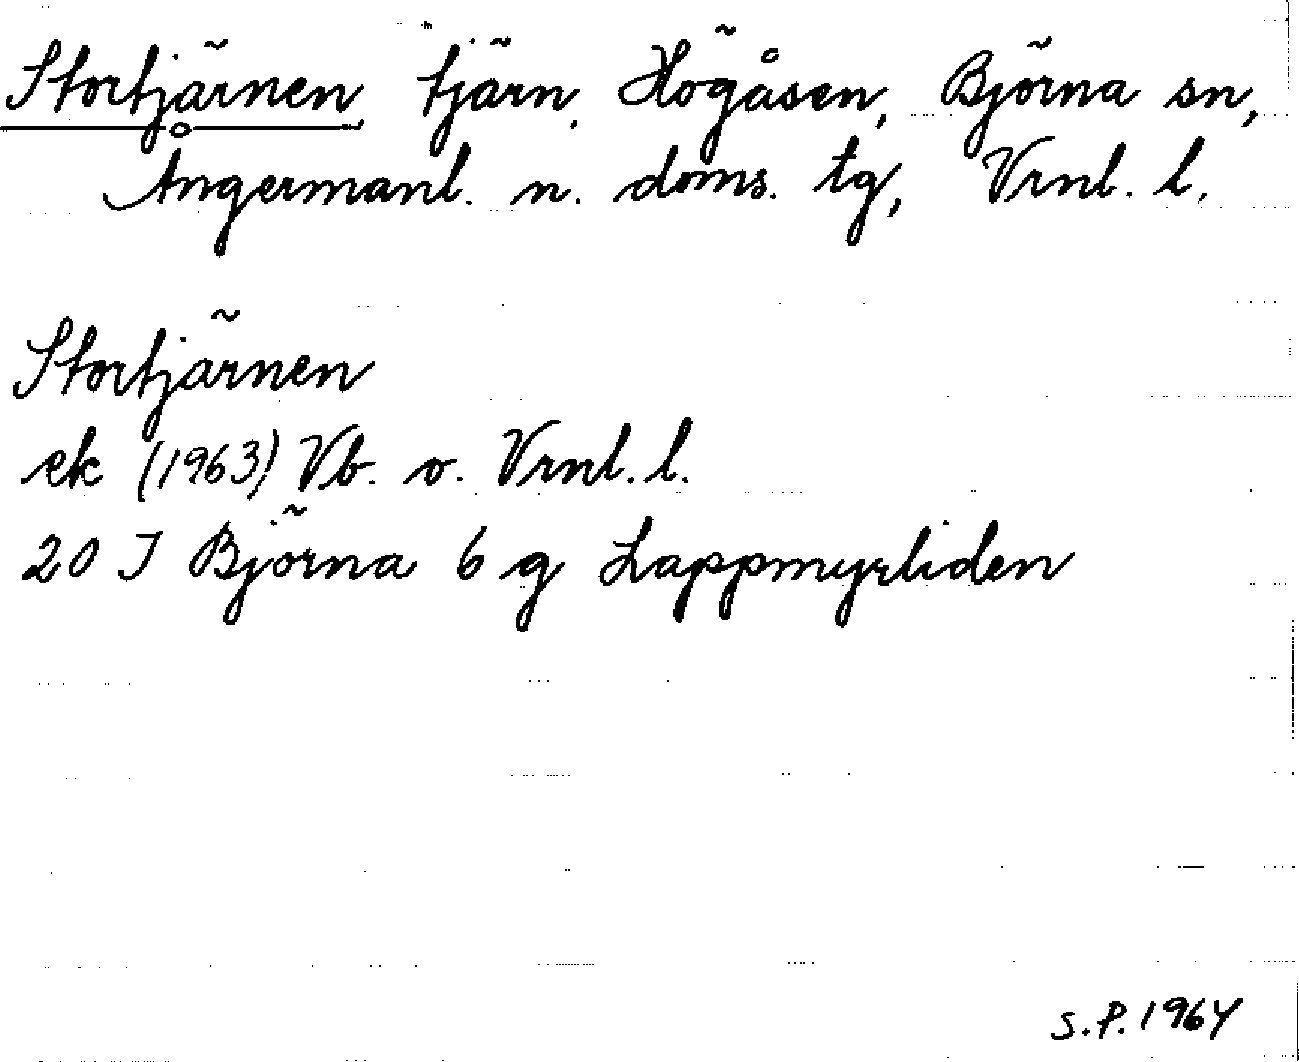 Stortjärnen, tjärn, Högåsen, Björna sn,
Ångermanl. n. doms. tg, Vrnl. l.
Stortjärnen
ek (1963) Vb. o. Vrnl. l.
20 J Björna 6 g Lappmyrliden
S.P. 1964